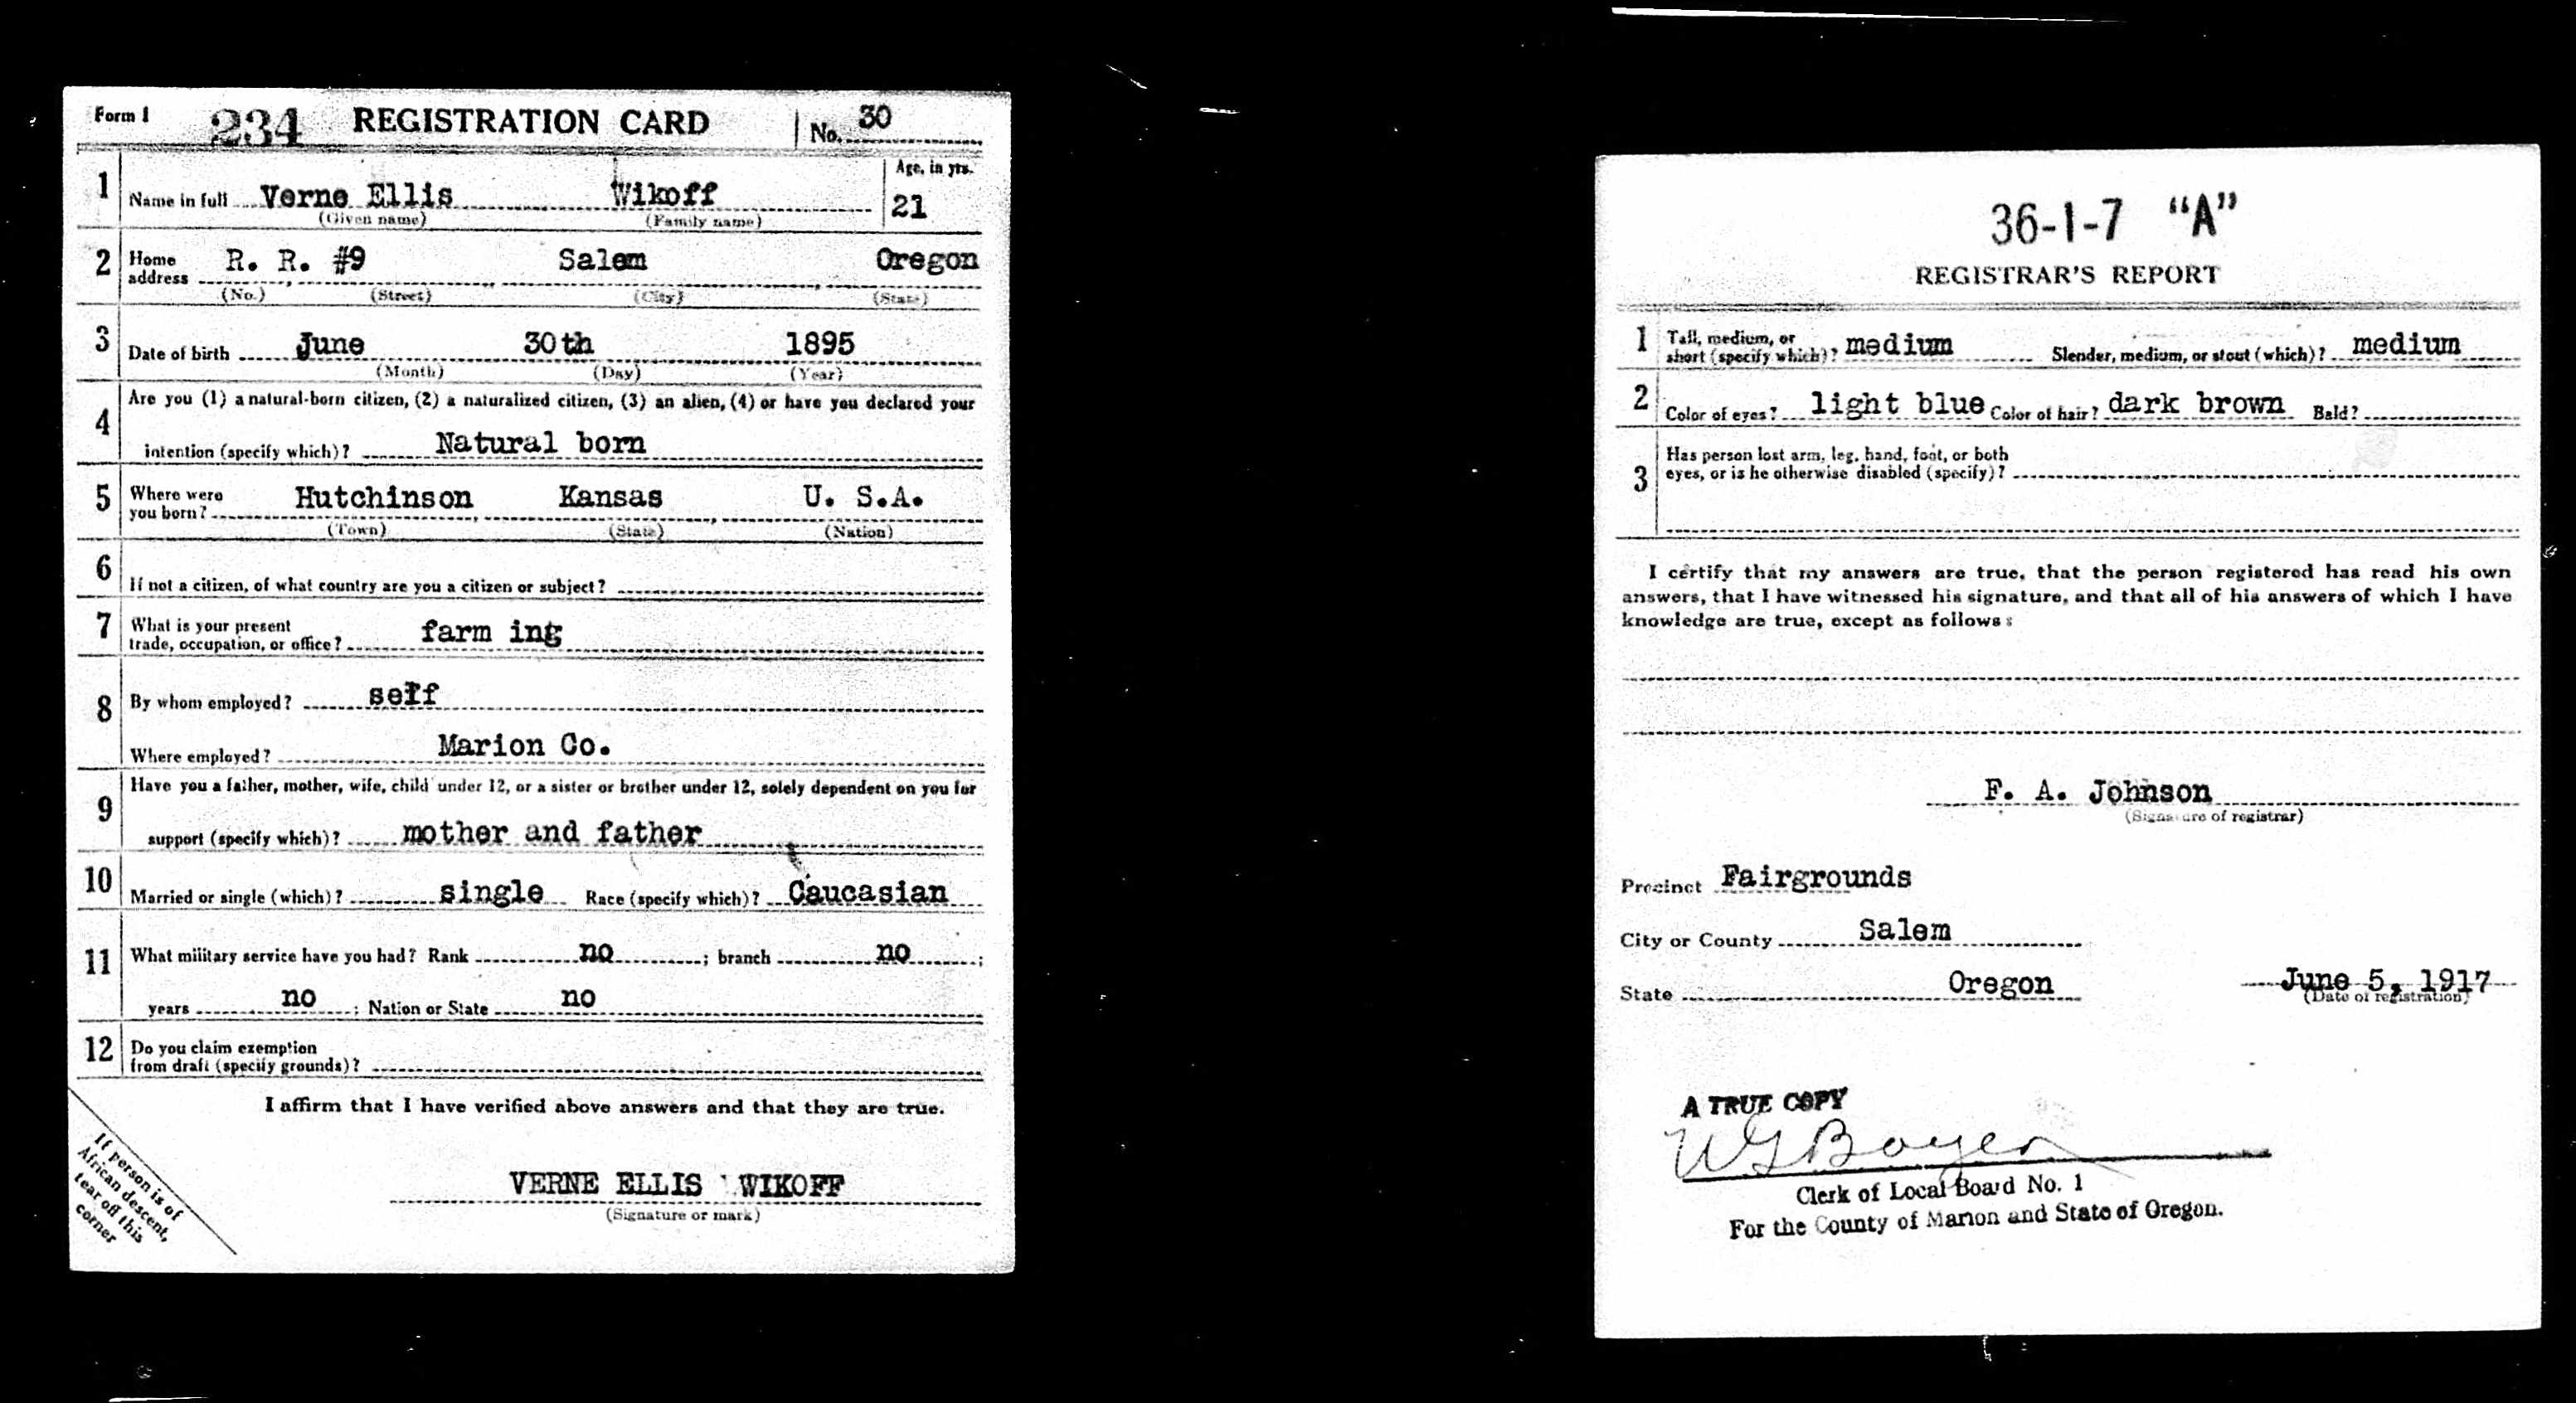 Form 1 234 REGISTRATION CARD No. 30
1 Name in full Verne Ellis Wikoff Age, in yrs. 21
(Given name) (Family name)
2 Home address R. R. #9 Salem Oregon
(No.) (Street) (City) (State)
3 Date of birth June 30th 1895
(Month) (Day) (Year)
4 Are you (1) a natural-born citizen, (2) a naturalized citizen, (3) an alien, (4) or have you declared your
intention (specify which)? Natural born
5 Where were you born? Hutchinson Kansas U. S.A.
(Town) (State) (Nation)
6 If not a citizen, of what country are you a citizen or subject?
7 What is your present
trade, occupation, or office? farm ing
8 By whom employed? self
Where employed? Marion Co.
9 Have you a father, mother, wife, child under 12, or a sister or brother under 12, solely dependent on you for
support (specify which)? mother and father
10 Married or single (which)? single Race (specify which)? Caucasian
11 What military service have you had? Rank no ; branch no ;
years no ; Nation or State no
12 Do you claim exemption
from draft (specify grounds)?
I affirm that I have verified above answers and that they are true.
VERNE ELLIS WIKOFF
(Signature or mark)
If person is of
African descent,
tear off this
corner
36-1-7 "A"
REGISTRAR'S REPORT
1 Tall, medium, or
short (specify which)? medium Slender, medium, or stout (which)? medium
2 Color of eyes? light blue Color of hair? dark brown Bald?
3 Has person lost arm, leg, hand, foot, or both
eyes, or is he otherwise disabled (specify)?
I certify that my answers are true, that the person registered has read his own
answers, that I have witnessed his signature, and that all of his answers of which I have
knowledge are true, except as follows:
F. A. Johnson
(Signature of registrar)
Precinct Fairgrounds
City or County Salem
State Oregon June 5, 1917
(Date of registration)
A TRUE COPY
W G Boyer
Clerk of Local Board No. 1
For the County of Marion and State of Oregon.